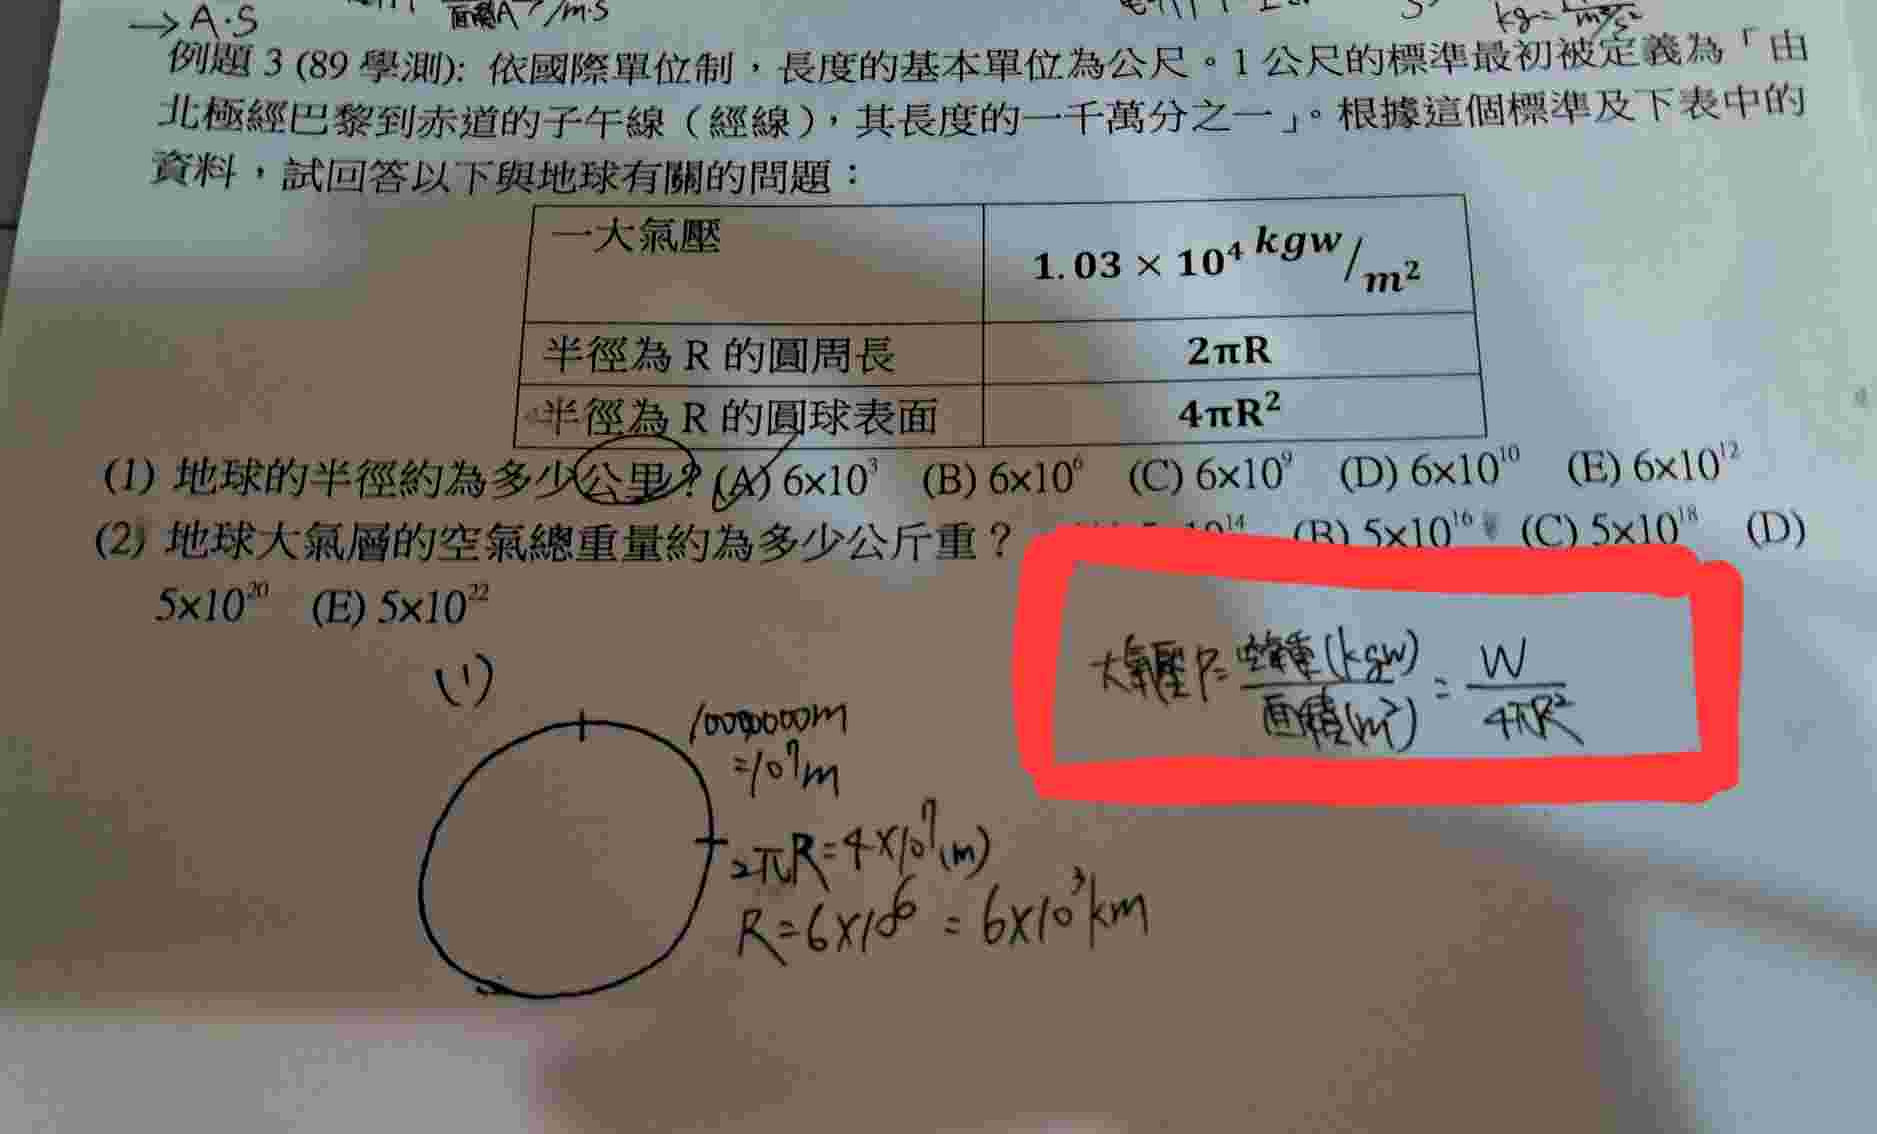 →A·S
面積A /m·S
kg=
例題 3 (89 學測): 依國際單位制，長度的基本單位為公尺。1 公尺的標準最初被定義為「由
北極經巴黎到赤道的子午線（經線），其長度的一千萬分之一」。根據這個標準及下表中的
資料，試回答以下與地球有關的問題：
一大氣壓 1.03 × 10⁴ kgw/m²
半徑為 R 的圓周長 2πR
半徑為 R 的圓球表面 4πR²
(1) 地球的半徑約為多少公里? (A) 6x10³ (B) 6x10⁶ (C) 6x10⁹ (D) 6x10¹⁰ (E) 6x10¹²
(2) 地球大氣層的空氣總重量約為多少公斤重？ 10¹⁴ (B) 5x10¹⁶ (C) 5x10¹⁸ (D)
5x10²⁰ (E) 5x10²²
大氣壓P=空氣重(kgw)/面積(m²)=W/4πR²
(1)
10000000m
=10⁷m
2πR=4×10⁷(m)
R=6×10⁶=6×10³km